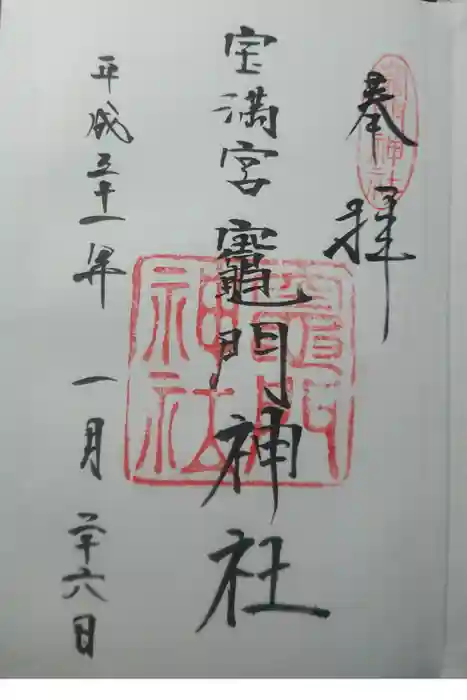 奉拝
宝満宮竈門神社
平成三十一年 一月 二十六日
竈門神社